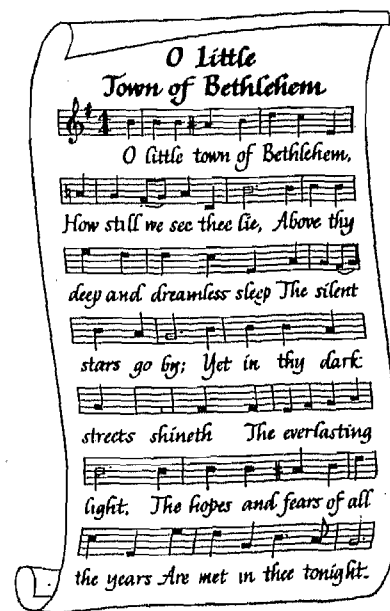 O Little
Town of Bethlehem
O little town of Bethlehem,
How still we see thee lie, Above thy
deep and dreamless sleep The silent
stars go by; Yet in thy dark
streets shineth The everlasting
light. The hopes and fears of all
the years Are met in thee tonight.